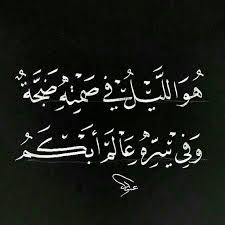 هُوَ اللَّيْلُ فِي صَمْتِهِ ضَجَّةٌ
وَفِي سِرِّهِ عَالَمٌ أَبْكَمُ